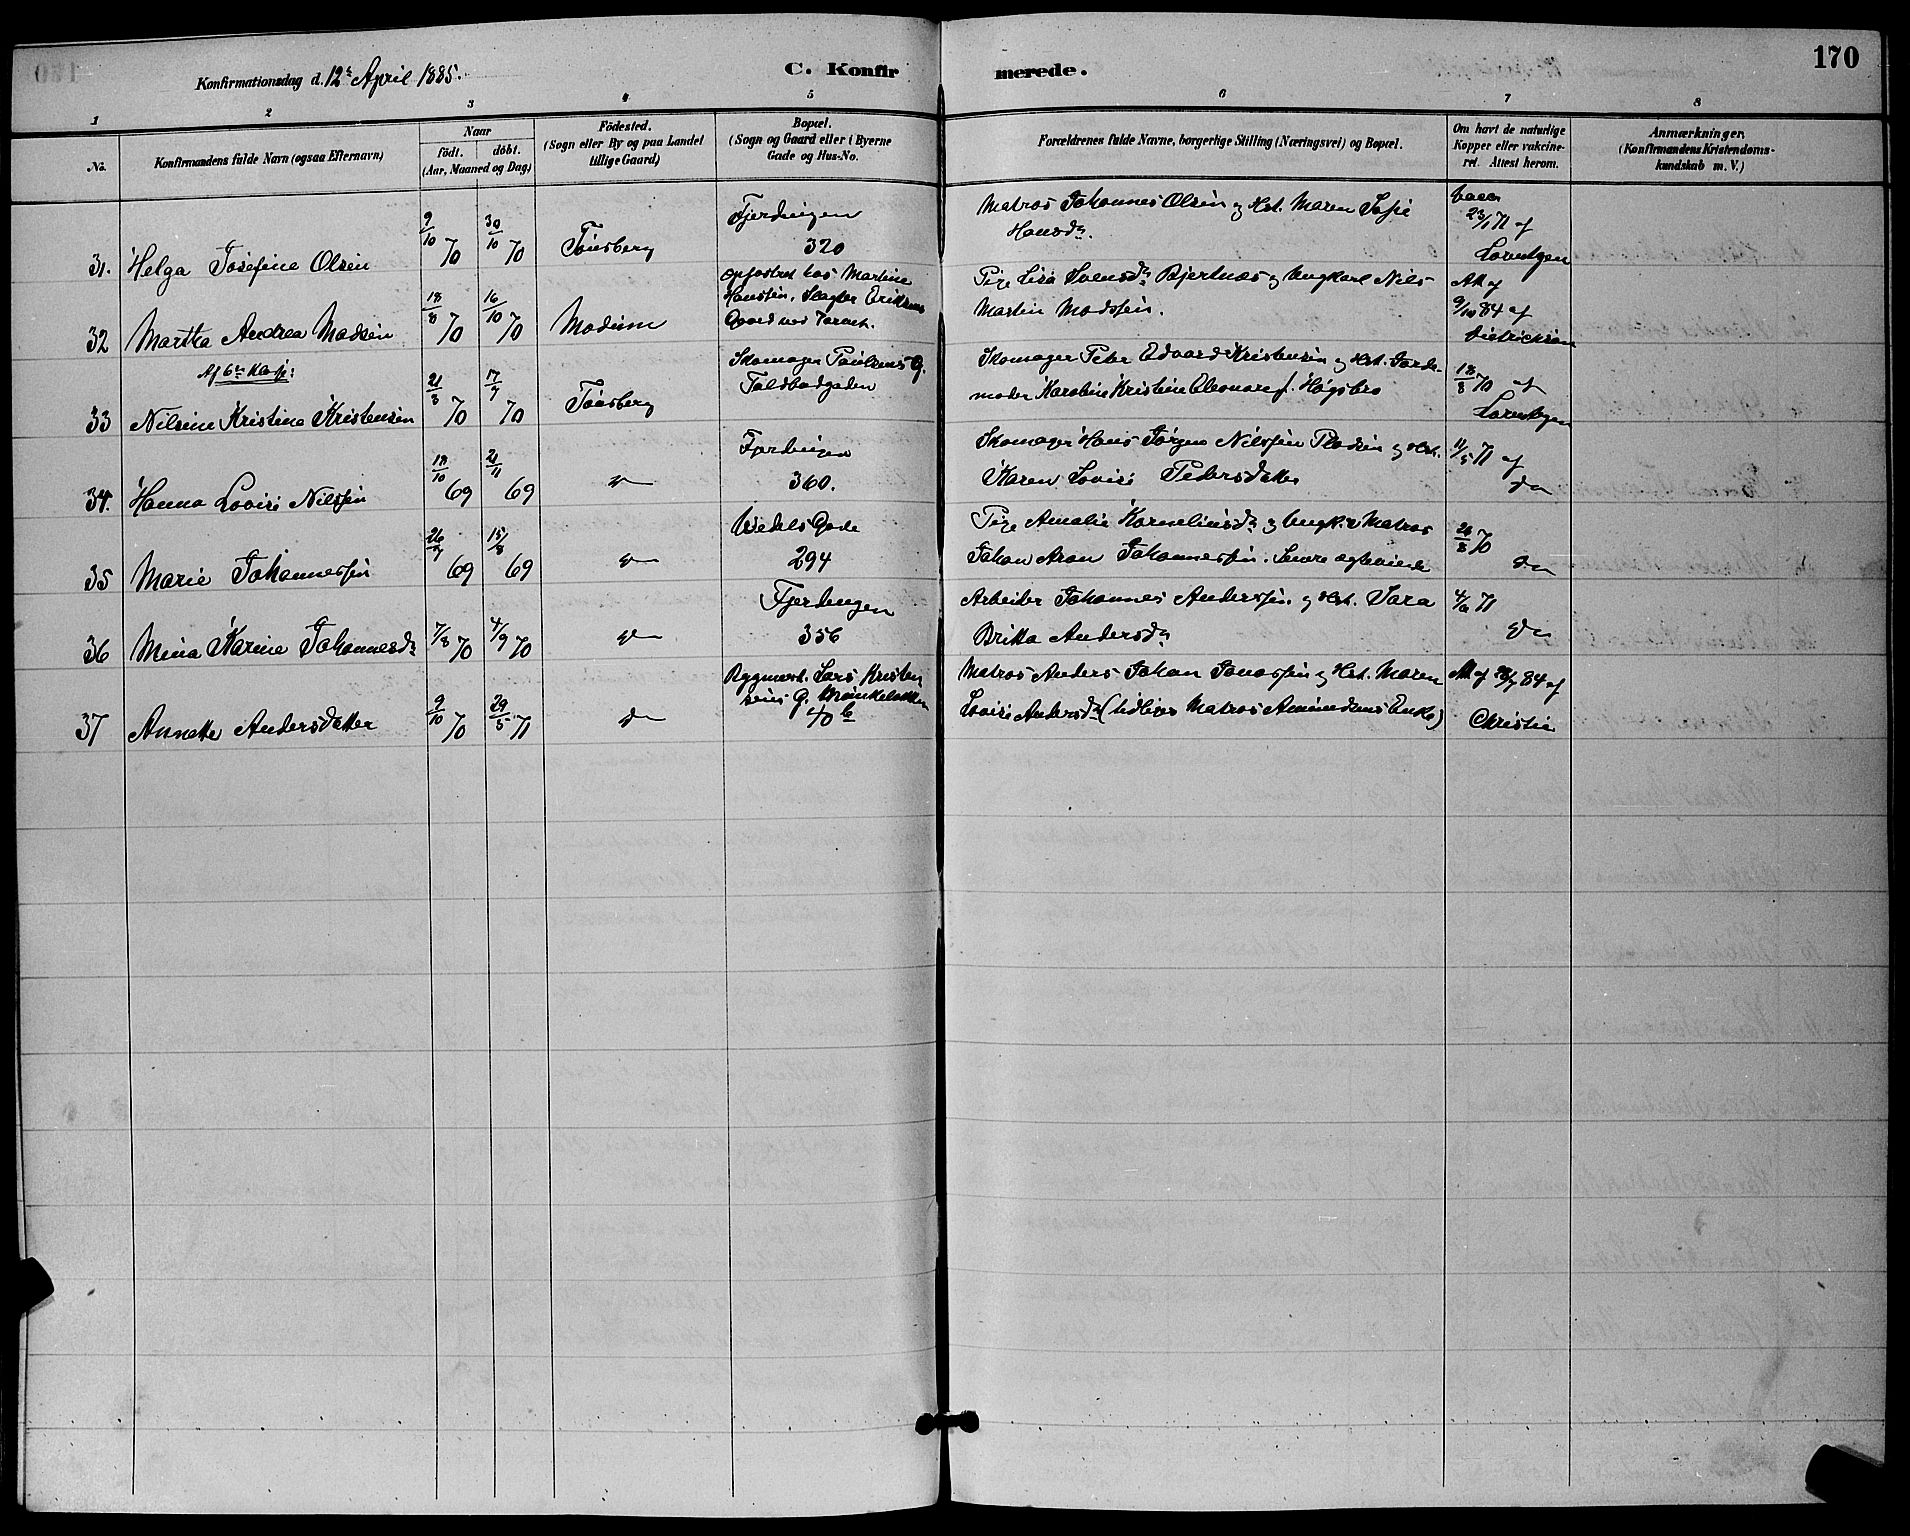 Konfirmationsdag d. 12te April 1885.
C. Konfirmerede.
170
1 2 3 4 5 6 7 8
No.
Konfirmandens fulde Navn (ogsaa Efternavn)
Naar
födt. döbt.
(Aar, Maaned og Dag)
Födested.
(Sogn eller By og paa Landet
tillige Gaard)
Bopæl.
(Sogn og Gaard eller i Byerne
Gade og Hus-No.
Forældrenes fulde Navne, borgerlige Stilling (Næringsvei) og Bopæl.
Om havt de naturlige
Kopper eller vakcine-
ret. Attest herom.
Anmærkninger.
(Konfirmandens Kristendoms-
kundskab m. V.)
31. Helga Josefine Olsen 9/10 70 30/10 70 Tönsberg
Fjerdingen
320
Matros Johannes Olsen og Hst. Maren Sofie
Hansdr.
vacc.
23/1 71 af
Lorentzen
32 Martha Andrea Madsen 18/8 70 16/10 70 Modum
opfostret hos Martine
Hanssen, Slagter Eriksens
Gaard ved Torvet.
Pige Lisa Svensdr Bjertnæs og Ungkarl Nils
Martin Madssen.
Att. af
9/10 84 af
Dietrichson
Af 6te Kl.
33 Nilsine Kristine Kristensen 21/3 70 17/7 70 Tönsberg
Skomager Paulsens G.
Toldbodgaden
Skomager Peter Edvard Kristensen og Hst. Jorde-
moder Karoline Kristine Eleonore f. Högsbro
18/8 70 af
Lorentzen
34. Hanna Lovise Nilssen 18/10 69 21/11 69 do
Fjerdingen
360.
Skomager Hans Jörgen Nilssen og Hst.
Karen Lovise Pedersdatter
11/5 71 af
do
35 Marie Johannessen 26/7 69 15/8 69 do
Wedels Gade
294
Pige Amalie Korneliusdr og Ungk. Matros
Johan Aron Johannessen. Senere ægteviede
do
36 Mina Karine Johannesdr 7/8 70 4/9 70 do
Fjerdingen
356
Arbeider Johannes Anderssen og Hst. Sara
Britta Andersdr
71
do
37 Annette Andersdatter 9/10 70 29/5 71 do
Bygmest. Lars Kristen
sens G.
40 b
Matros Anders Johan Jonassen og Hst. Maren
Lovise Andersdr (tidligere Matros Amundsens Enke)
Att. af 84 af
Christie